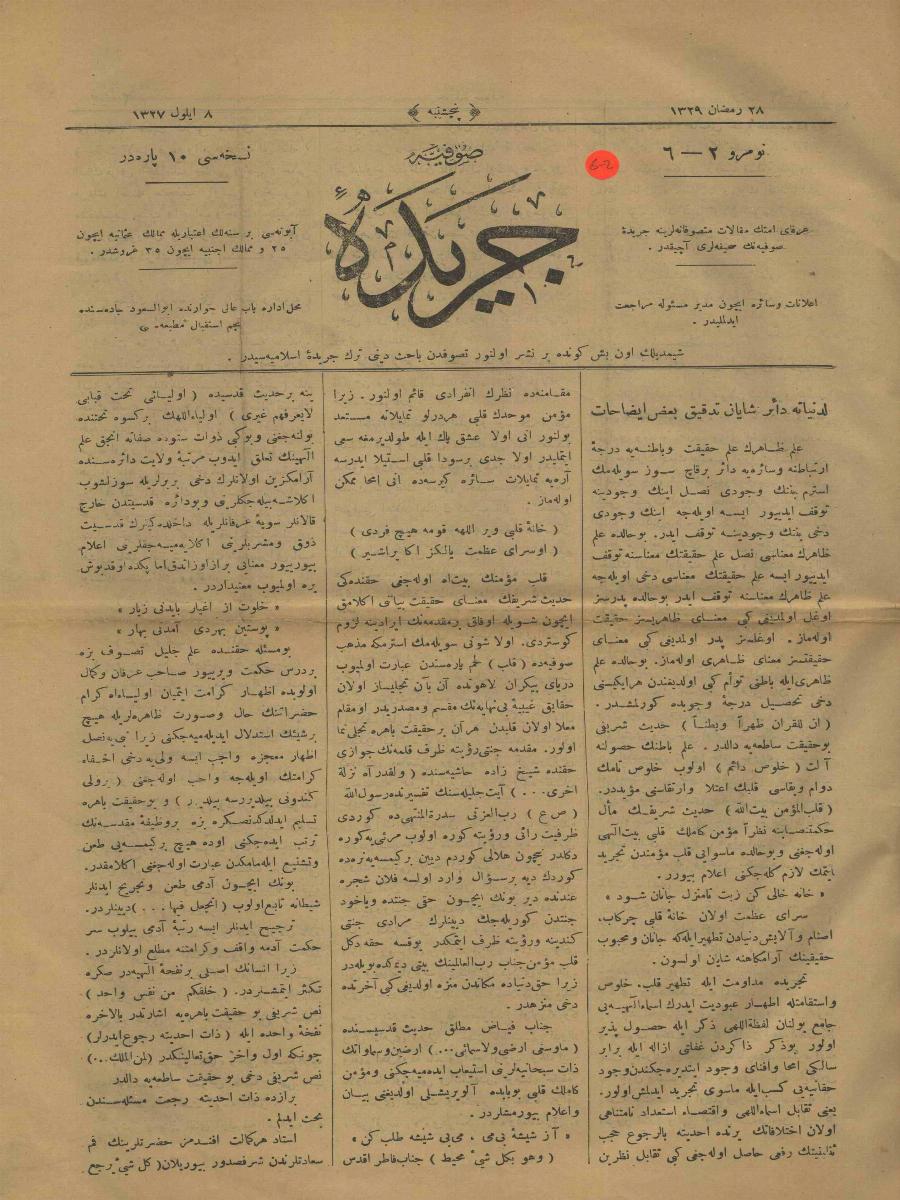 ٢٨ رمضان ١٣٢٩
﴿ پنجشنبه ﴾
٨ ايلول ١٣٢٧
نومرو ٢ — ٦
6-2
صوفيه
جريدهٔ
نسخه‌سى ١٠ پاره‌در
عرفاى امتك مقالات متصوفانه‌لرينه جريدهٔ
صوفيه‌نك صحيفه‌لرى آچيقدر .
اعلانات وسائره ايچون مدير مسئوله مراجعت
ايدلمليدر .
آبونه‌سى بر سنه‌لك اعتباريله ممالك عثمانيه ايچون
٢٥ و ممالك اجنبيه ايچون ٣٥ غروشدر .
محل اداره باب عالى جوارنده ابوالسعود جاده‌سنده
نجم استقبال مطبعه‌سى
شيمديلك اون بش كونده بر نشر اولنور تصوفدن باحث دينى ترك جريدهٔ اسلاميه‌سيدر .
لدنياته دائر شايان تدقيق بعض ايضاحات
علم ظاهرك علم حقيقت وباطنه‌يه درجهٔ
ارتباطنه وسائره‌يه دائر برقاچ سوز سويله‌مك
استرم بنك وجودى نصل اينك وجودينه
توقف ايدييور ايسه اويله‌جه اينك وجودى
دخى بنك وجودينه توقف ايدر. بوحالده علم
ظاهرك معناسى نصل علم حقيقتك معناسنه توقف
ايدييور ايسه علم حقيقتك معناسى دخى اويله‌جه
علم ظاهرك معناسنه توقف ايدر بوحالده پدرسز
اوغل اولمديغى كبى معناى ظاهريسز حقيقت
اوله‌ماز. اوغلسز پدر اولمديغى كبى معناى
حقيقتسز معناى ظاهرى اوله‌ماز. بوحالده علم
ظاهرى‌ايله باطنى توأم كبى اولديغندن هرايكيسنى
دخى تحصيل درجهٔ وجوبده كورلمشدر.
( ان للقران ظهراً وبطناً ) حديث شريفى
بوحقيقت ساطعه‌يه دالدر . علم باطنك حصولنه
آلت ( خلوص دائم ) اولوب خلوص تامك
دوام وبقاسى قلبك اعتلا وارتقاسنى مؤيددر.
( قلب‌المؤمن بيت‌الله ) حديث شريفنك مآل
حكمتمآبنه نظراً مؤمن كاملك قلبى بيت‌الهى
اوله‌جغى وبوحالده ماسوايى قلب مؤمندن تجريد
ايتمك لازم كله‌جكنى اعلام بيورر.
« خانه خالى كن زبت تامنزل جانان شود »
سراى عظمت اولان خانهٔ قلبى چركاب،
اصنام وآلايش دنيادن تطهيرايله‌كه جانان ومحبوب
حقيقينك آرامكاهنه شايان اولسون.
تجريده مداومت ايله تطهير قلب، خلوص
واستقامتله اظهار عبوديت ايدرك اسماءالهيه‌يى
جامع بولنان لفظةاللهى ذكر ايله حصول پذير
اولور بوذكر ذاكردن غفلتى ازاله ايله برابر
سالكى امحا وافناى وجود ايتديره‌جكندن‌وجود
حقانيه‌يى كسب‌ايله ماسوى تجريد ايدلمش‌اولور.
يعنى تقابل اسماءاللهى واقتضاء استعداد نامتناهى
اولان اختلافاتك برنده احديته بالرجوع حجب
تقابليتك رفعى حاصل اوله‌جغى كبى تقابل نظرين
مقامنه‌ده نظرك انفرادى قائم اولنور. زيرا
مؤمن موحدك قلبى هردرلو تمايلاته مستعد
بولنور انى اولا عشق پاك ايله طولديرمغه سعى
ايتمليدر اولا جدى برسودا قلبى استيلا ايدرسه
آره‌يه تمايلات سائره كيرسه‌ده انى امحا ممكن
اوله‌ماز.
( خانهٔ قلبى وير اللهه قومه هيچ فردى )
( اوسراى عظمت يالكز اكا يراشير )
قلب مؤمنك بيت‌اه اوله‌جغى حقنده‌كى
حديث شريفك معناى حقيقت بياننى اكلامق
ايچون شويله اوفاق برمقدمه‌نك ايرادينه لزوم
كوستردى. اولا شونى سويله‌مك استرمكه مذهب
صوفيه‌ده ( قلب ) لحم پاره‌سندن عبارت اولميوب
درياى بيكران لاهوتده آن بآن تجليساز اولان
حقايق غيبيهٔ بى‌نهايه‌نك مقسم ومصدريدر اومقام
معلا اولان قلبدن هرآن برحقيقت باهره تجلى‌نما
اولور. مقدمه جنتى‌رؤيته ظرف قلمه‌نك جوازى
حقنده شيخ زاده حاشيه‌سنده ( ولقدرآه نزلة
اخرى...) آيت جليله‌سنك تفسيرنده رسول‌الله
(ص ع) رب‌العزتى سدرةالمنتهىده كوردى
ظرفيت رائى ورؤيته كوره اولوب مرئى‌يه‌كوره
دكلدر نيچون هلالى كوردم ديين بركيمسه‌يه‌نره‌ده
كوردك ديه برسؤال وارد اولسه فلان شجره
عندنده دير بونك ايچون حق جنتده وياخود
جنتدن كوريله‌جك ديينلرك مرادى جنتى
كندينه ورؤيته ظرف ايتمكدر يوقسه حقه دكل
قلب مؤمن‌جناب رب‌العالمينك بيتى ديمكده‌بويله‌در
زيرا حق‌دنياده مكاندن منزه اولديغى‌كبى آخرتده
دخى منزهدر.
جناب فياض مطلق حديث قدسيسنده
( ماوسعنى ارضى‌ولاسمائى...) ارضين‌وسماواتك
ذات سبحانيه‌لرينى استيعاب ايده‌ميه‌جكنى ومؤمن
كاملك قلبى بوبابده آلويريشلى اولديغنى بيان
واعلام بيورمشلردر.
« آز شيشهٔ بى‌مى ، مى‌بى شيشه طلب كن »
( وهو بكل شئ محيط ) جناب‌فاطر اقدس
ينه برحديث قدسيده ( اوليائى تحت قبابى
لايعرفهم غيرى ) اولياءاللهك بركسوه تحتنده
بولنه‌جغنى وبوكى ذوات ستوده صفاته انجق علم
الهينك تعلق ايدوب مرتبهٔ ولايت دائره‌سنده
آرامكزين اولانلرك دخى بربرلريله سوزلشوب
اكلاشه‌بيله‌جكلرينى وبودائره قدسيتدن خارج
قالانلر سويهٔ عرفانلريله داخلده‌كيلرك قدسيت
ذوق ومشربلرينى اكلايه‌ميه‌جقلرينى اعلام
بيورييور معنايى براز اوزاتدق‌اما پكده‌اوقدبوش
يره اولميوب معنيداردر.
« خلوت از اغيار بايدنى زيار »
« پوستين بهردى آمدنى بهار »
بومسئله حقنده علم جليل تصوف بزه
بردرس حكمت ويرييور صاحب عرفان وكمال
اولوبده اظهار كرامت ايتميان اولياءاه كرام
حضراتنك حال وصورت ظاهره‌لريله هيچ
برشيئك استدلال ايديله‌ميه‌جكنى زيرا نبى‌يه‌نصل
اظهار معجزه واجب ايسه ولى‌يه دخى اخفاء
كرامتك اويله‌جه واجب اوله‌جغنى (برولى
كندونى بيلديررسه بيلدير) و بوحقيقت باهره
تسليم ايدلدكدنصكره بزه بروظيفهٔ مقدسه‌نك
ترتب ايده‌جكنى اوده هيچ بركيمسه‌يى طعن
وتشنيع ايله‌مامكدن عبارت اوله‌جغنى اكلامقدر.
بونك ايچون آدمى طعن وتجريح ايدنلر
شيطانه تابع اولوب (اتجعل فيها...) ديينلردر.
ترجيح ايدنلر ايسه رتبهٔ آدمى بيلوب سر
حكمت آدمه واقف وكرامتنه مطلع اولانلردر .
زيرا انسانك اصلى برنفحهٔ الهيه‌در صكره
تكثر ايتمشدر. ( خلقكم من نفس واحد )
نص شريفى بو حقيقت باهره‌يه اشارتدر بالاخره
نفخهٔ واحده ايله ( ذات احديته رجوع‌ايدرلر )
چونكه اول وآخر حق‌تعالينكدر (لمن‌الملك...)
نص شريفى دخى بو حقيقت ساطعه‌يه دالدر
برازده ذات احديته رجعت مسئله‌سندن
بحث ايدلم .
استاد هركمالت افندمز حضرتلرينك فم
سعادتلرندن شرفصدور بيوريلان( كل شئ يرجع